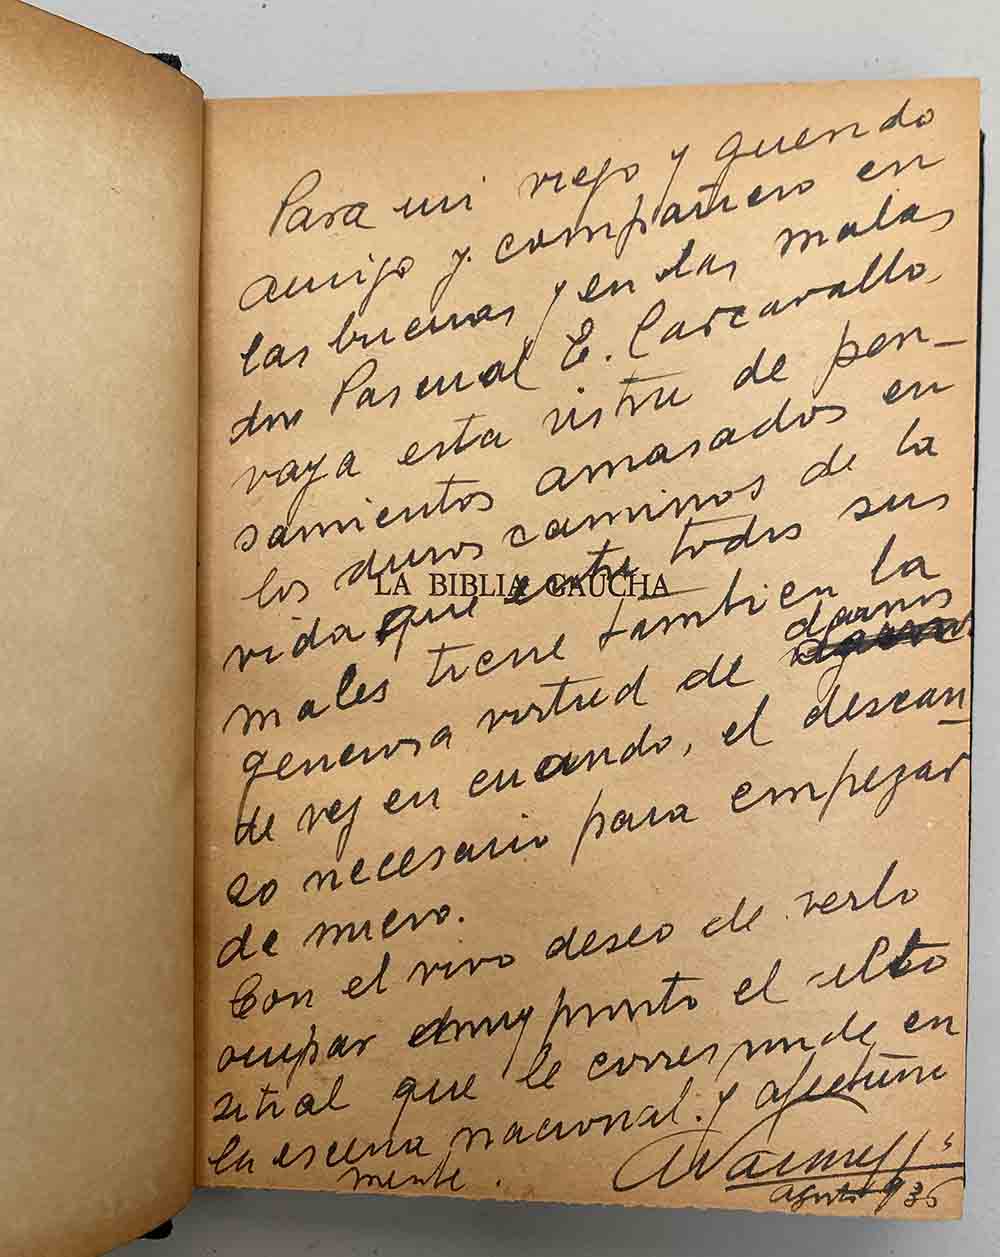 Para mi viejo y querido
amigo y compañero en
las buenas y en las malas
don Pascual E. Carcavallo,
vaya esta ristra de pen-
samientos amasados en
los duros caminos de la
LA BIBLIA GAUCHA
vida que entre todos sus
males tiene tambien la
generosa virtud de darnos
de vez en cuando, el descan-
so necesario para empezar
de nuevo.
Con el vivo deseo de verlo
ocupar muy pronto el alto
sitial que le corresponde en
la escena nacional. y afectuosa
mente.
agosto 936